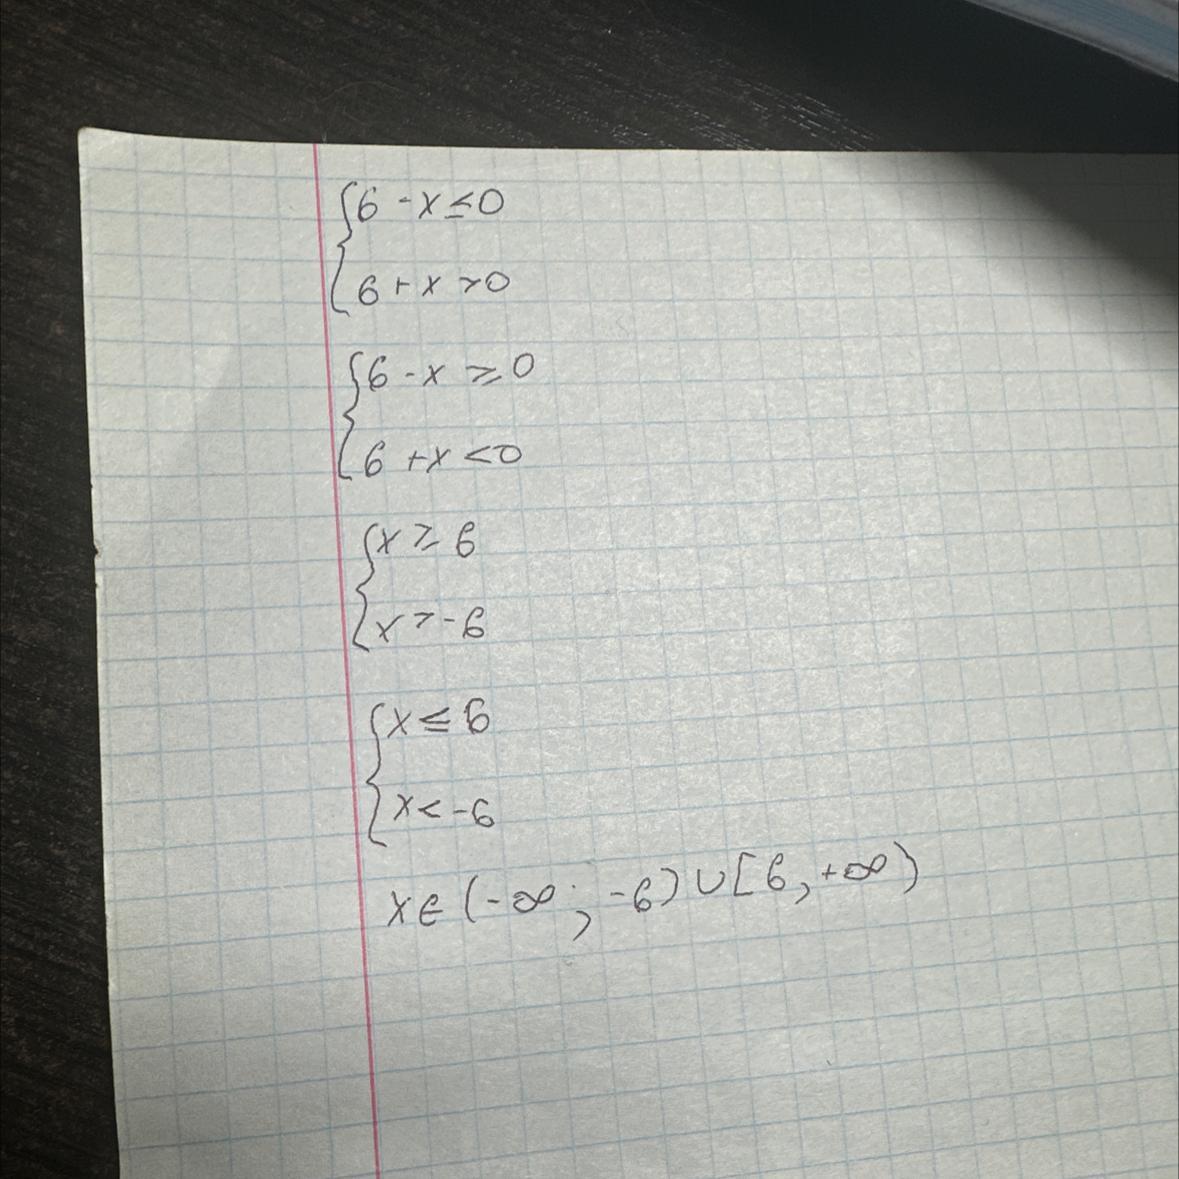 {6 - x ≤ 0
6 + x > 0
{6 - x ≥ 0
6 + x < 0
{x ≥ 6
x > -6
{x ≤ 6
x < -6
x ∈ (-∞; -6) ∪ [6, +∞)